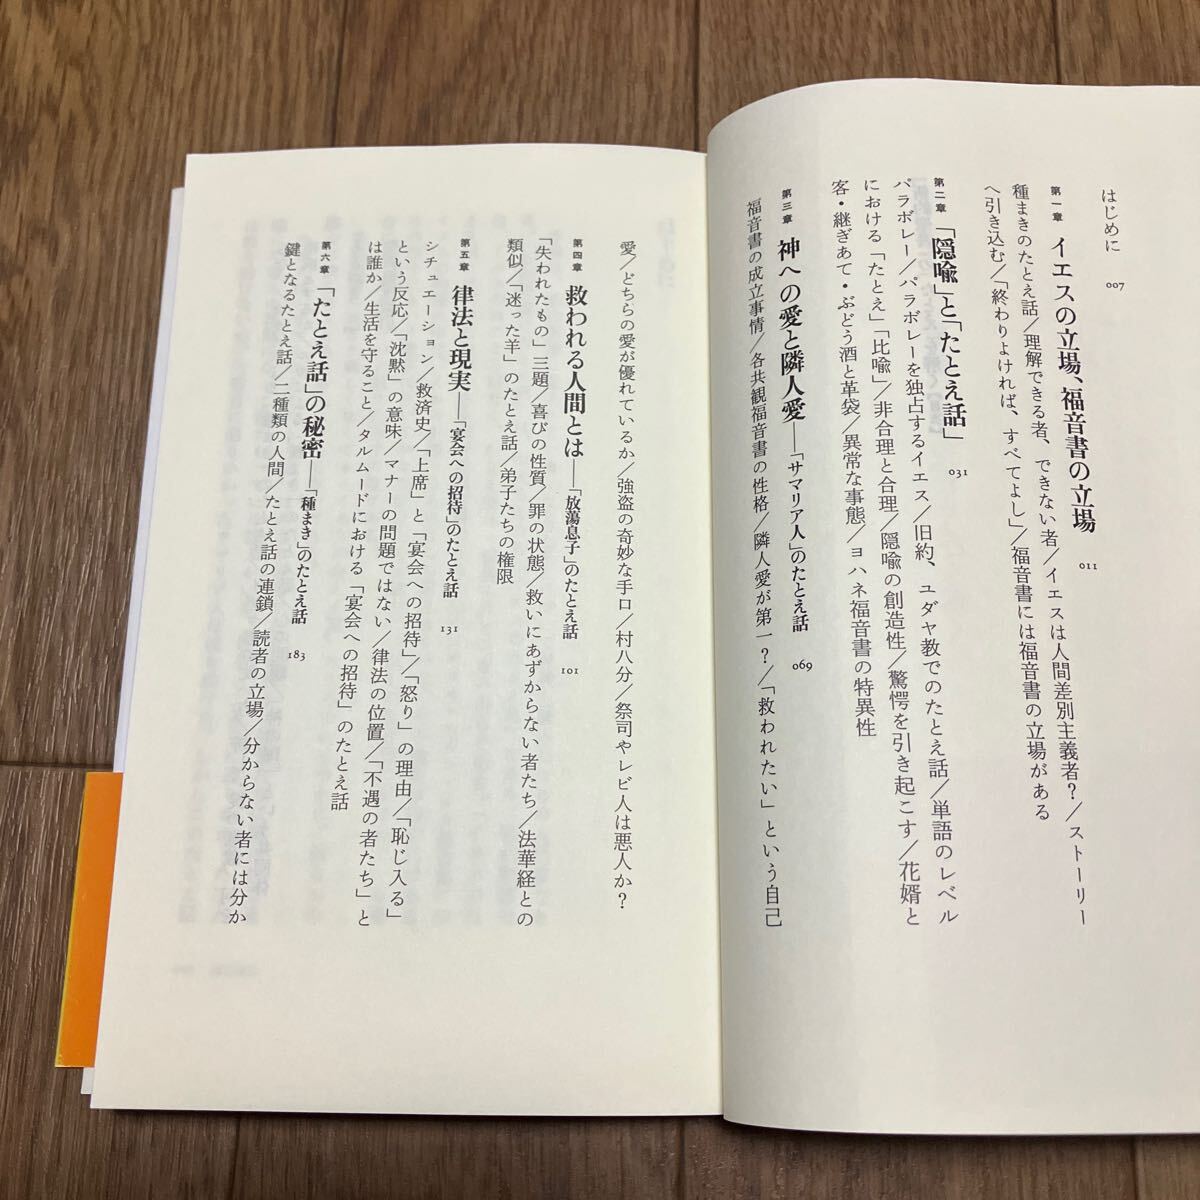 はじめに 007
第一章 イエスの立場、福音書の立場 011
種まきのたとえ話/理解できる者、できない者/イエスは人間差別主義者?/ストーリー
へ引き込む/「終わりよければ、すべてよし」/福音書には福音書の立場がある
第二章 「隠喩」と「たとえ話」 031
パラボレー/パラボレーを独占するイエス/旧約、ユダヤ教でのたとえ話/単語のレベル
における「たとえ」「比喩」/非合理と合理/隠喩の創造性/驚愕を引き起こす/花婿と
客・継ぎあて・ぶどう酒と革袋/異常な事態/ヨハネ福音書の特異性
第三章 神への愛と隣人愛──「サマリア人」のたとえ話 069
福音書の成立事情/各共観福音書の性格/隣人愛が第一?/「救われたい」という自己
愛/どちらの愛が優れているか/強盗の奇妙な手口/村八分/祭司やレビ人は悪人か?
第四章 救われる人間とは──「放蕩息子」のたとえ話 101
「失われたもの」三題/喜びの性質/罪の状態/救いにあずからない者たち/法華経との
類似/「迷った羊」のたとえ話/弟子たちの権限
第五章 律法と現実──「宴会への招待」のたとえ話 131
シチュエーション/救済史/「上席」と「宴会への招待」/「怒り」の理由/「恥じ入る」
という反応/「沈黙」の意味/マナーの問題ではない/律法の位置/「不遇の者たち」と
は誰か/生活を守ること/タルムードにおける「宴会への招待」のたとえ話
第六章 「たとえ話」の秘密──「種まき」のたとえ話 183
鍵となるたとえ話/二種類の人間/たとえ話の連鎖/読者の立場/分からない者には分か